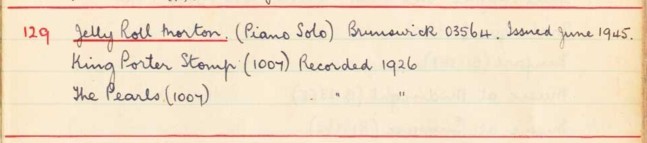 129 Jelly Roll Morton. (Piano Solo) Brunswick 03564. Issued June 1945.
King Porter Stomp (1007) Recorded 1926
The Pearls (1007) " "